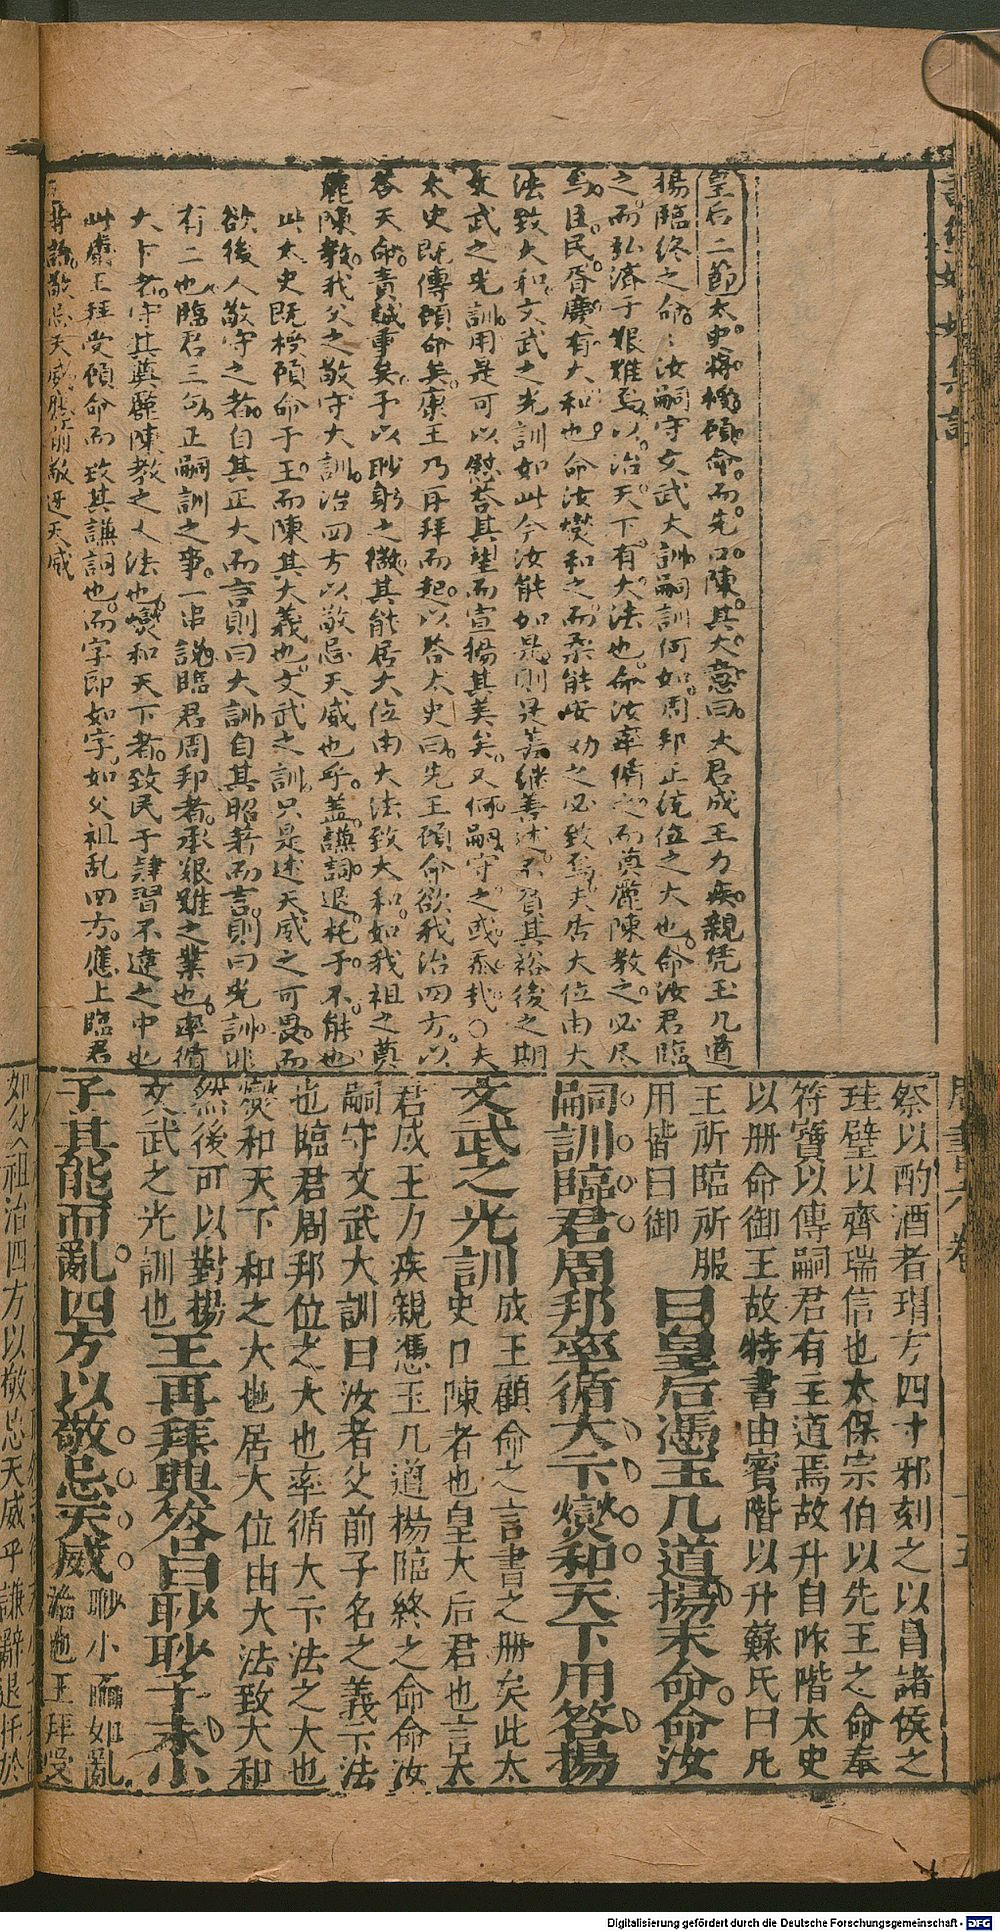 皇后二節太史将授顧命而先口陳其大意曰大君成王力疾親凭玉几道
揚臨終之命命汝嗣守文武大訓嗣訓何如周邦正統位之大也命汝君臨
之而弘濟于艱難焉以治天下有大法也命汝率循之而奠麗陳教之必尽
焉且民胥廣有大和也命汝燮和之而柔能安劝之必致焉夫居大位由大
法致大和文武之光訓如此今汝能如是則是善继善述不負其裕後之期
文武之光訓用是可以慰荅其望而宣揚其美矣又何嗣守之或忝哉○夫
太史既傳顧命矣康王乃再拜而起以答太史曰先王顧命欲我治四方以
答天命責誠重矣予以眇躬之微其能居大位由大法致大和如我祖之奠
麗陳教我父之敬守大訓治四方以敬忌天威也乎盖謙詞退托予不能也
此太史既授顧命于王而陳其大義也文武之訓只是述天威之可畏而
欲後人敬守之者自其正大而言則曰大訓自其昭著而言則曰光訓非
有二也臨君三句正嗣訓之事一串說臨君周邦者承艱難之業也率循
大卞者守其奠麗陳教之大法也燮和天下者致民于肄習不違之中也
此康王拜受顧命而致其謙詞也而字即如字如父祖乱四方應上臨君
周書六卷
十五
祭以酌酒者瑁方四寸邪刻之以冒諸侯之
珪璧以齊瑞信也太保宗伯以先王之命奉
符寳以傳嗣君有主道焉故升自阼階太史
以册命御王故特書由賓階以升蘇氏曰凡
王所臨所服用皆曰御 曰皇后憑玉几道揚末命命汝
嗣訓臨君周邦率循大卞燮和天下用答揚
文武之光訓 成王顧命之言書之册矣此太
史口陳者也皇大后君也言大
君成王力疾親憑玉几道揚臨終之命命汝
嗣守文武大訓曰汝者父前子名之義卞法
也臨君周邦位之大也率循大卞法之大也
燮和天下和之大也居大位由大法致大和
然後可以對揚文武之光訓也 王再拜興答曰眇眇予末小
子其能而亂四方以敬忌天威 眇小而如亂
治也王拜受
如父祖治四方以敬忌天威乎謙辭退托於
Digitalisierung gefördert durch die Deutsche Forschungsgemeinschaft - DFG